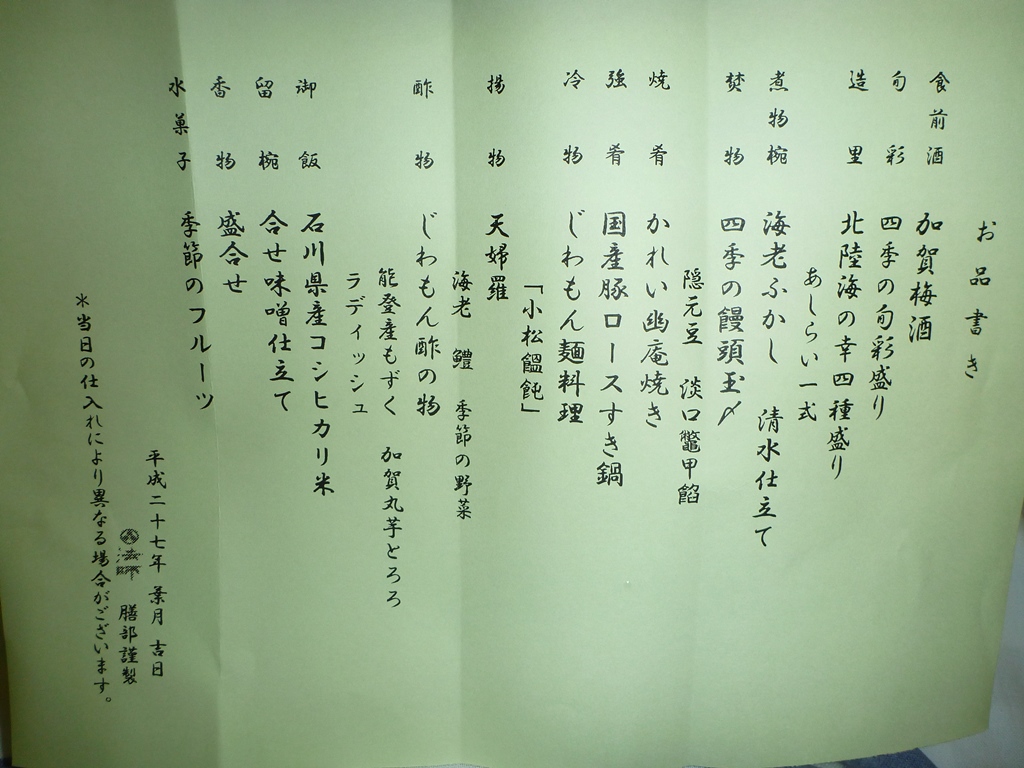 お品書き
食前酒 加賀梅酒
旬彩 四季の旬彩盛り
造里 北陸海の幸四種盛り
あしらい一式
煮物椀 海老ふかし 清水仕立て
焚物 四季の饅頭玉〆
隠元豆 淡口鼈甲餡
焼肴 かれい幽庵焼き
強肴 国産豚ロースすき鍋
冷物 じわもん麺料理
「小松饂飩」
揚物 天婦羅
海老 鱧 季節の野菜
酢物 じわもん酢の物
能登産もずく 加賀丸芋とろろ
ラディッシュ
御飯 石川県産コシヒカリ米
留椀 合せ味噌仕立て
香物 盛合せ
水菓子 季節のフルーツ
平成二十七年 葉月 吉日
法師 膳部謹製
*当日の仕入れにより異なる場合がございます。